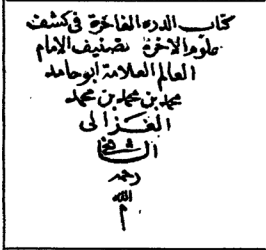 كتاب الدرة الفاخرة في كشف
علوم الاخرة تصنيف الامام
العالم العلامة ابو حامد
محمد بن محمد بن محمد
الغزالى
رحمه
الله